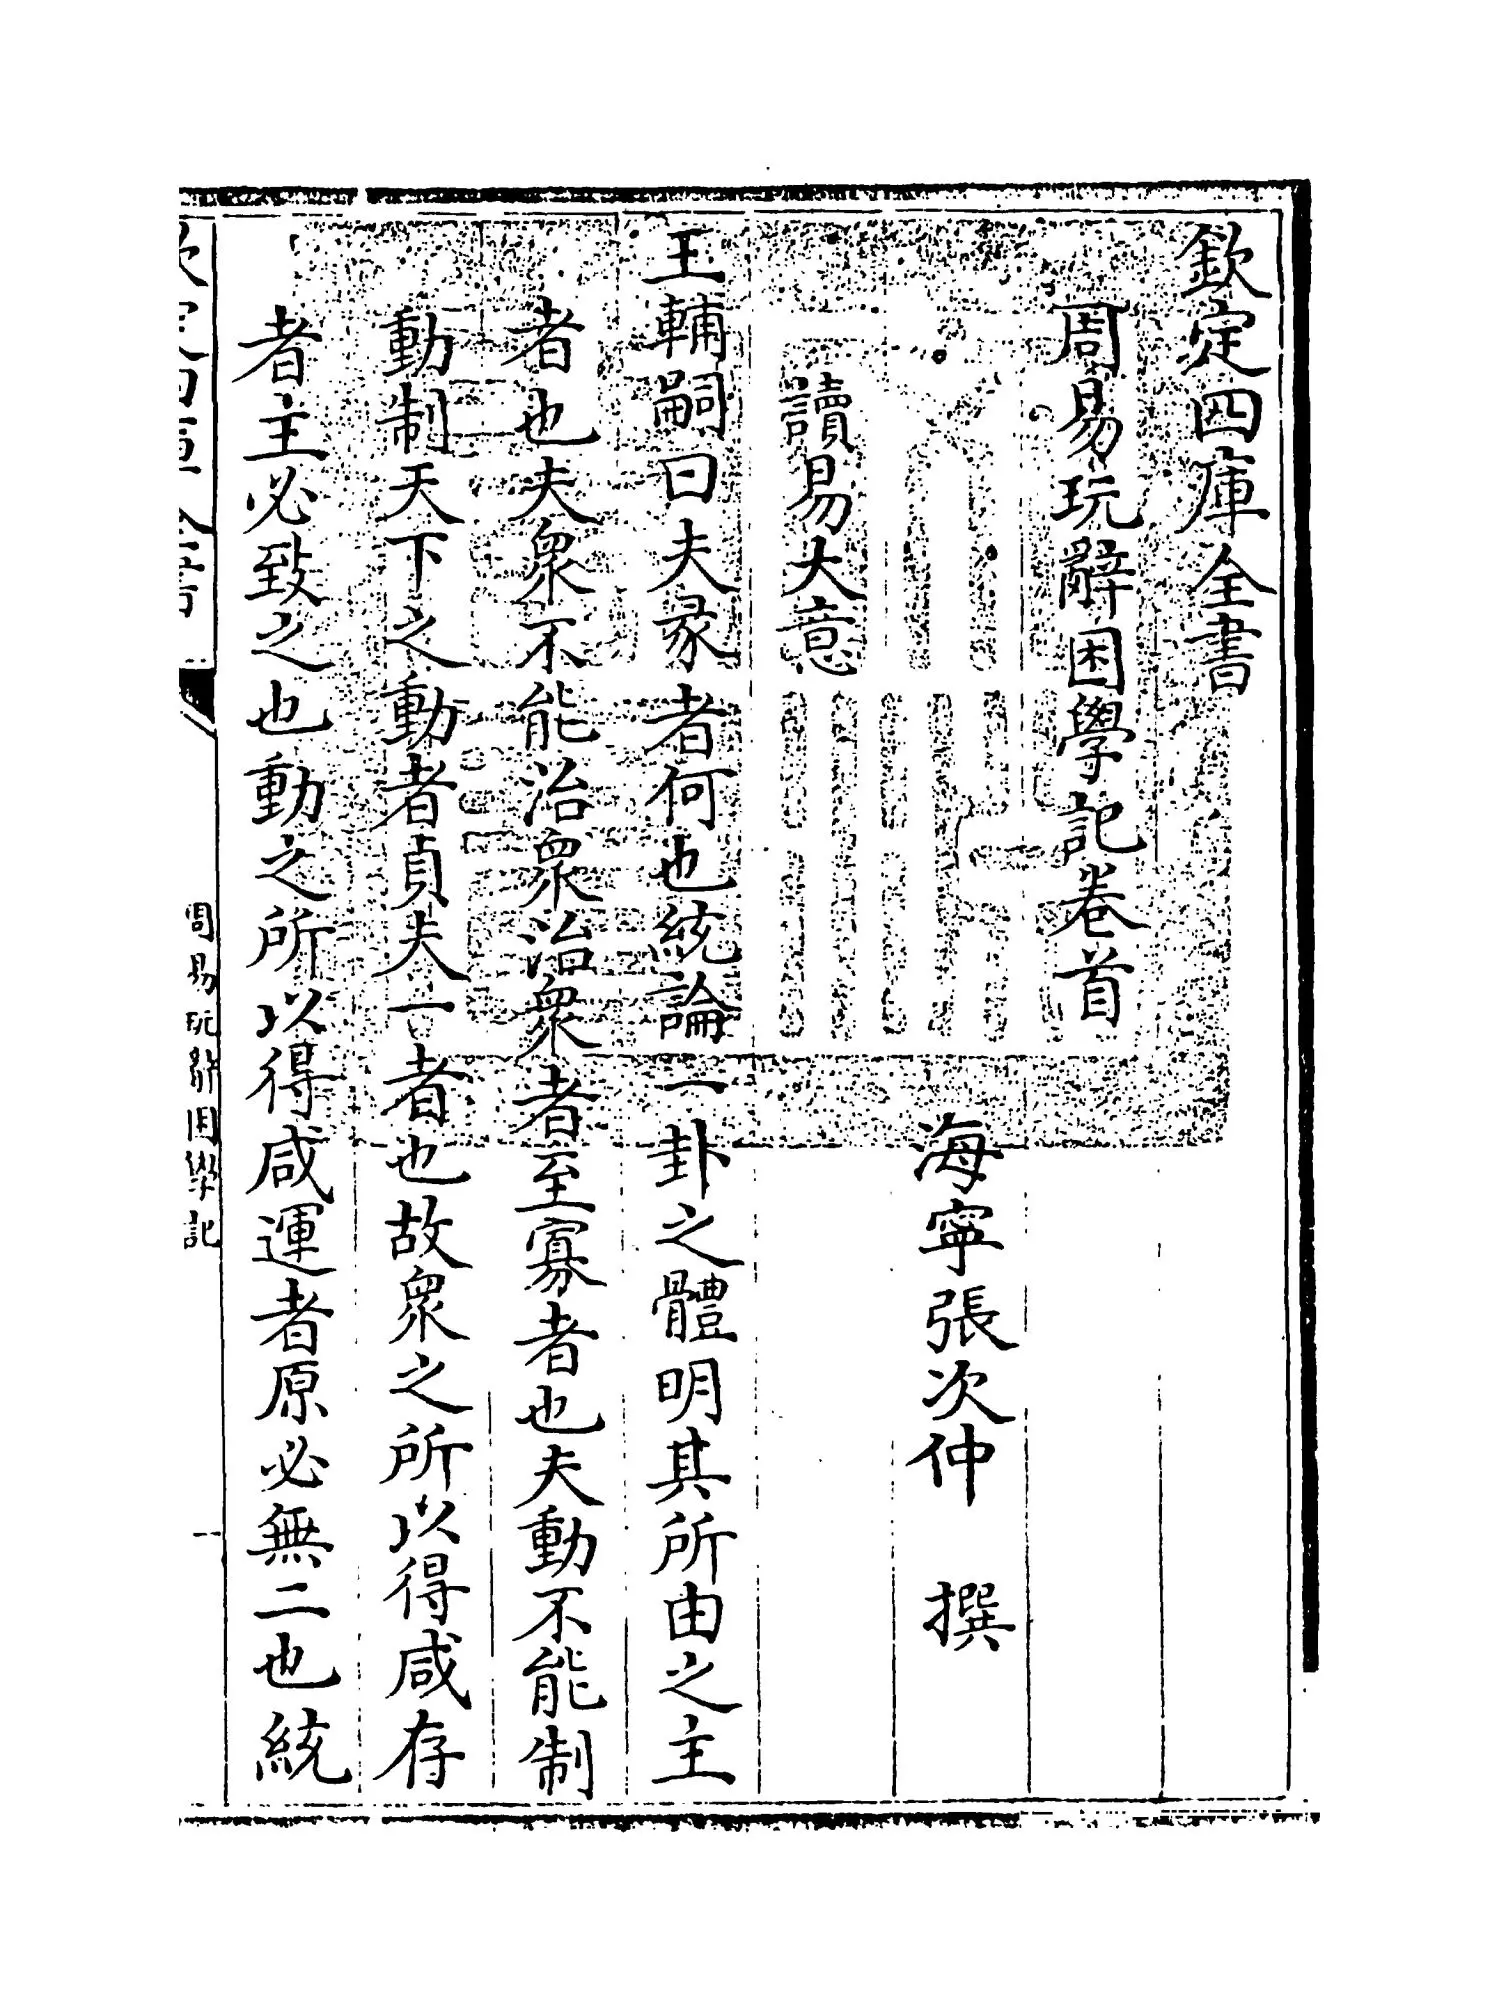 欽定四庫全書
周易玩辭困學記卷首
海寧張次仲 撰
讀易大意
王輔嗣曰夫彖者何也統論一卦之體明其所由之主
者也夫衆不能治衆治衆者至寡者也夫動不能制
動制天下之動者貞夫一者也故衆之所以得咸存
者主必致之也動之所以得咸運者原必無二也統
周易玩辭困學記
一